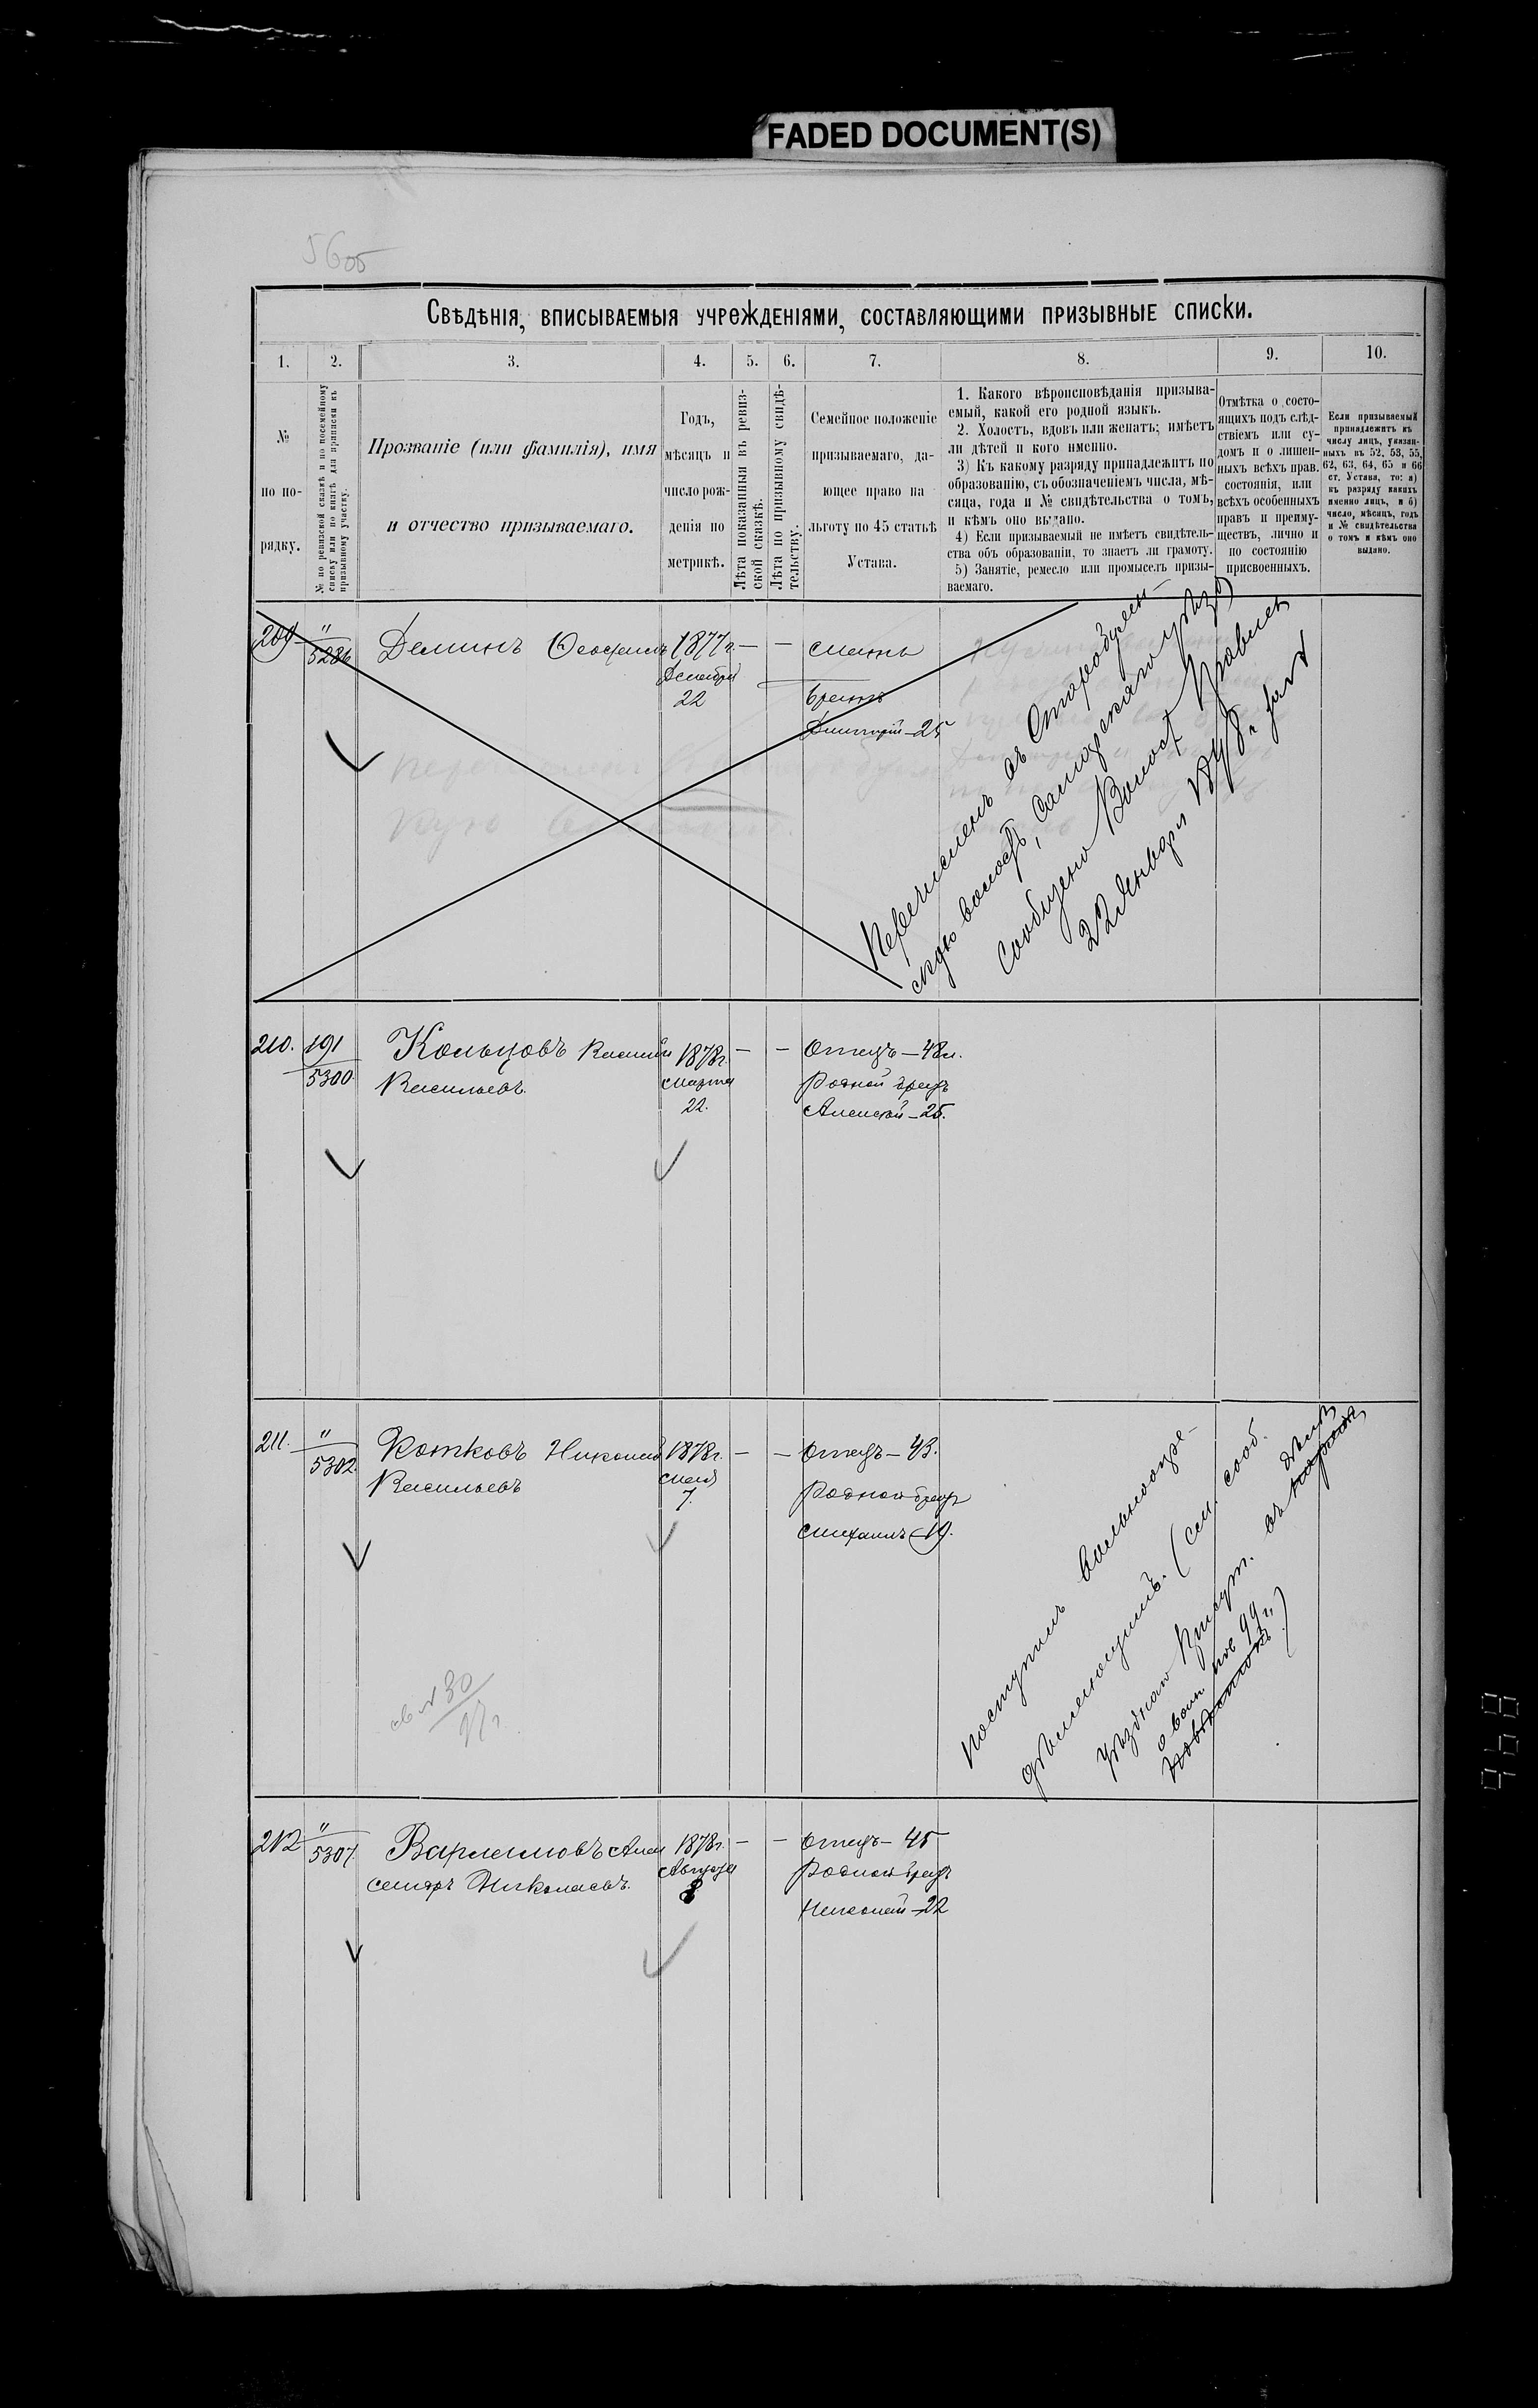 FADED DOCUMENT(S)
56об
Свѣдѣнія, вписываемыя учрежденіями, составляющими призывные списки.
1. 2. 3. 4. 5. 6. 7. 8. 9. 10.
№
по по-
рядку.
№ по ревизской сказкѣ и по посемейному
списку или по книгѣ для приписки къ
призывному участку.
Прозваніе (или фамилія), имя
и отчество призываемаго.
Годъ,
мѣсяцъ и
число рож-
денія по
метрикѣ.
Лѣта показанныя въ ревиз-
ской сказкѣ.
Лѣта по призывному свидѣ-
тельству.
Семейное положеніе
призываемаго, да-
ющее право на
льготу по 45 статьѣ
Устава.
1. Какого вѣроисповѣданія призыва-
емый, какой его родной языкъ.
2. Холостъ, вдовъ или женатъ; имѣетъ
ли дѣтей и кого именно.
3) Къ какому разряду принадлежитъ по
образованію, съ обозначеніемъ числа, мѣ-
сяца, года и № свидѣтельства о томъ,
и кѣмъ оно выдано.
4) Если призываемый не имѣетъ свидѣтель-
ства объ образованіи, то знаетъ ли грамоту.
5) Занятіе, ремесло или промыселъ призы-
ваемаго.
Отмѣтка о состо-
ящихъ подъ слѣд-
ствіемъ или су-
домъ и о лишен-
ныхъ всѣхъ прав.
состоянія, или
всѣхъ особенныхъ
правъ и преиму-
ществъ, лично и
по состоянію
присвоенныхъ.
Если призываемый
принадлежитъ къ
числу лицъ, указан-
ныхъ въ 52, 53, 55,
62, 63, 64, 65 и 66
ст. Устава, то: а)
къ разряду какихъ
именно лицъ, и б)
число, мѣсяцъ, годъ
и № свидѣтельства
о томъ и кѣмъ оно
выдано.
209 "
5286
Деминъ Ѳеофилъ
1877 г.
Декабря
22
— —
Мать
братъ
Дмитрій—25
Перечисленъ въ Старобуян-
скую волость, Самарскаго уѣзд
Сообщено Волост Правлен
22 Января
210. 191
5300
Кольцовъ Василій
Васильевъ.
1878г.
Марта
22.
— —
Отецъ—48л.
Родной братъ
Алексѣй—25.
211. "
5302.
Котковъ Николай
Васильевъ
1878г.
Мая
7.
— —
Отецъ—43.
Родной братъ
Михаилъ—19.
св. № 30
97 г.
поступилъ вольноопре-
дѣляющимъ. (см. сооб.
Уѣзднаго Присут. въ дѣлѣ
о воин пов 99 г.)
212 "
5307.
Варламовъ Алек
сандръ Николаевъ.
1878г.
Августа
8
— —
Отецъ—45
Родной братъ
Николай—22
968